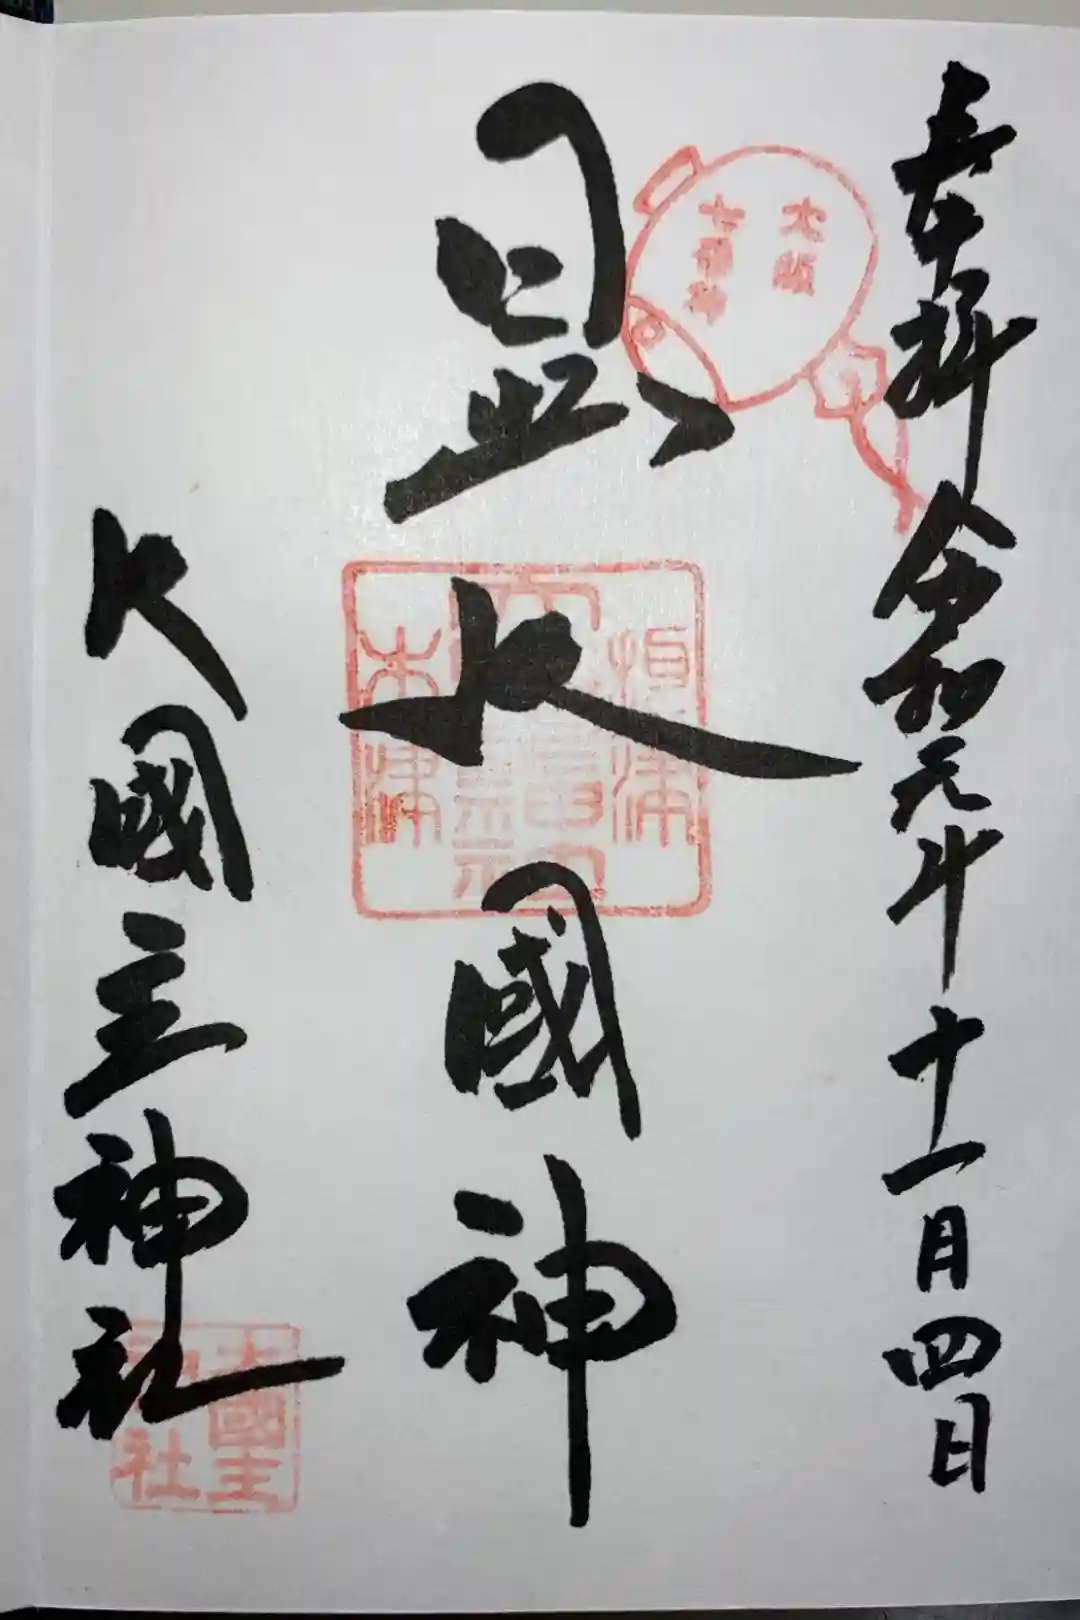 奉拝 令和元年十一月四日
大阪
七福神
日出大國神
木津
大國主神社
大國主
神社